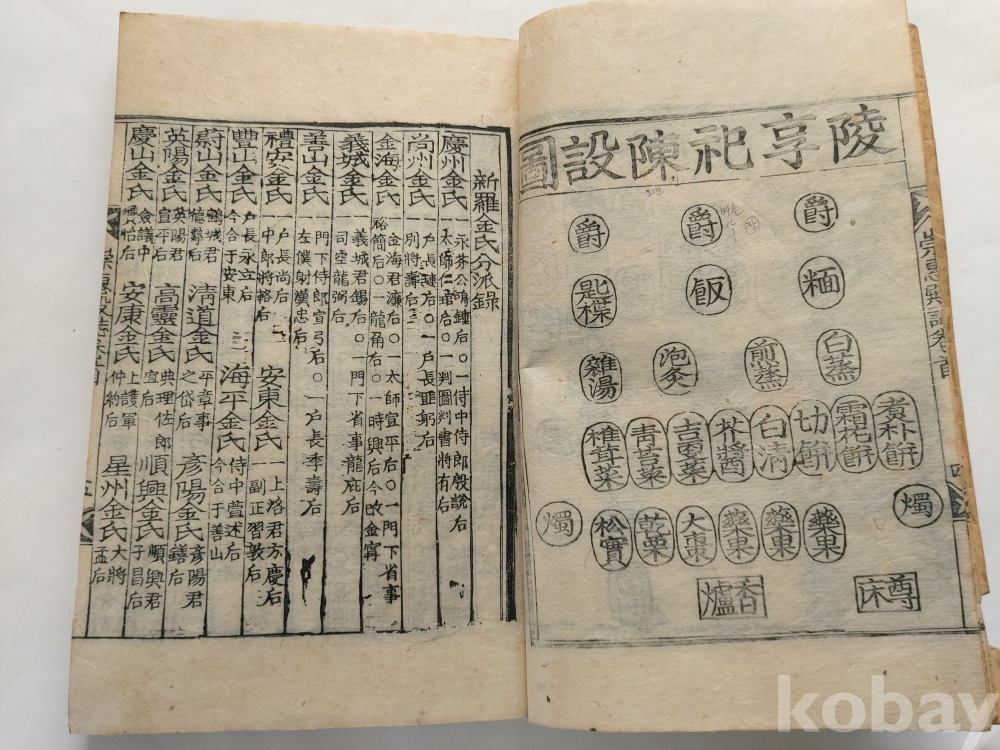 陵享祀陳設圖
爵 爵 爵
麵 飯 匙楪
白蒸 煎蒸 炮灸 雜湯
煮朴餠 霜花餠 切餠 白清 芥醬 吉更菜 靑苔菜 椎茸菜
燭 藥果 藥果 藥果 大棗 乾栗 松實 燭
尊床 香爐
崇惠殿誌卷首 四
新羅金氏分派錄
慶州金氏 一永芬公鳴鍾后○一侍中侍郎殷說后
一太師仁琯后○一判圖判書將有后
尚州金氏 一戶長鏈后○一戶長匪躬后
一別將壽后
金海金氏 一金海君濂后○一太師宣平后○一門下省事
裕簡后○一龍角后○一時興后今改金寗
義城金氏 一義城君錫后○一門下省事龍庇后
一司空龍弼后
善山金氏 一門下侍郎宣弓后○一戶長季壽后
左僕射漢忠后
禮安金氏 一戶長尚后 安東金氏 一上洛君方慶后
一中郎將輅后 一副正習敦后
豐山金氏 戶長永立后 海平金氏 侍中萱述后
今合于安東 今合于善山
蔚山金氏 鶴城君 淸道金氏 平章事 彥陽金氏 彥陽君
德摯后 之岱后 鐥后
英陽金氏 英陽君 高靈金氏 典理佐郎 順興金氏 順興君
宜后 于昌后
慶山金氏 僉議中 安康金氏 上護軍 星州金氏 大將
仲約后 孟后